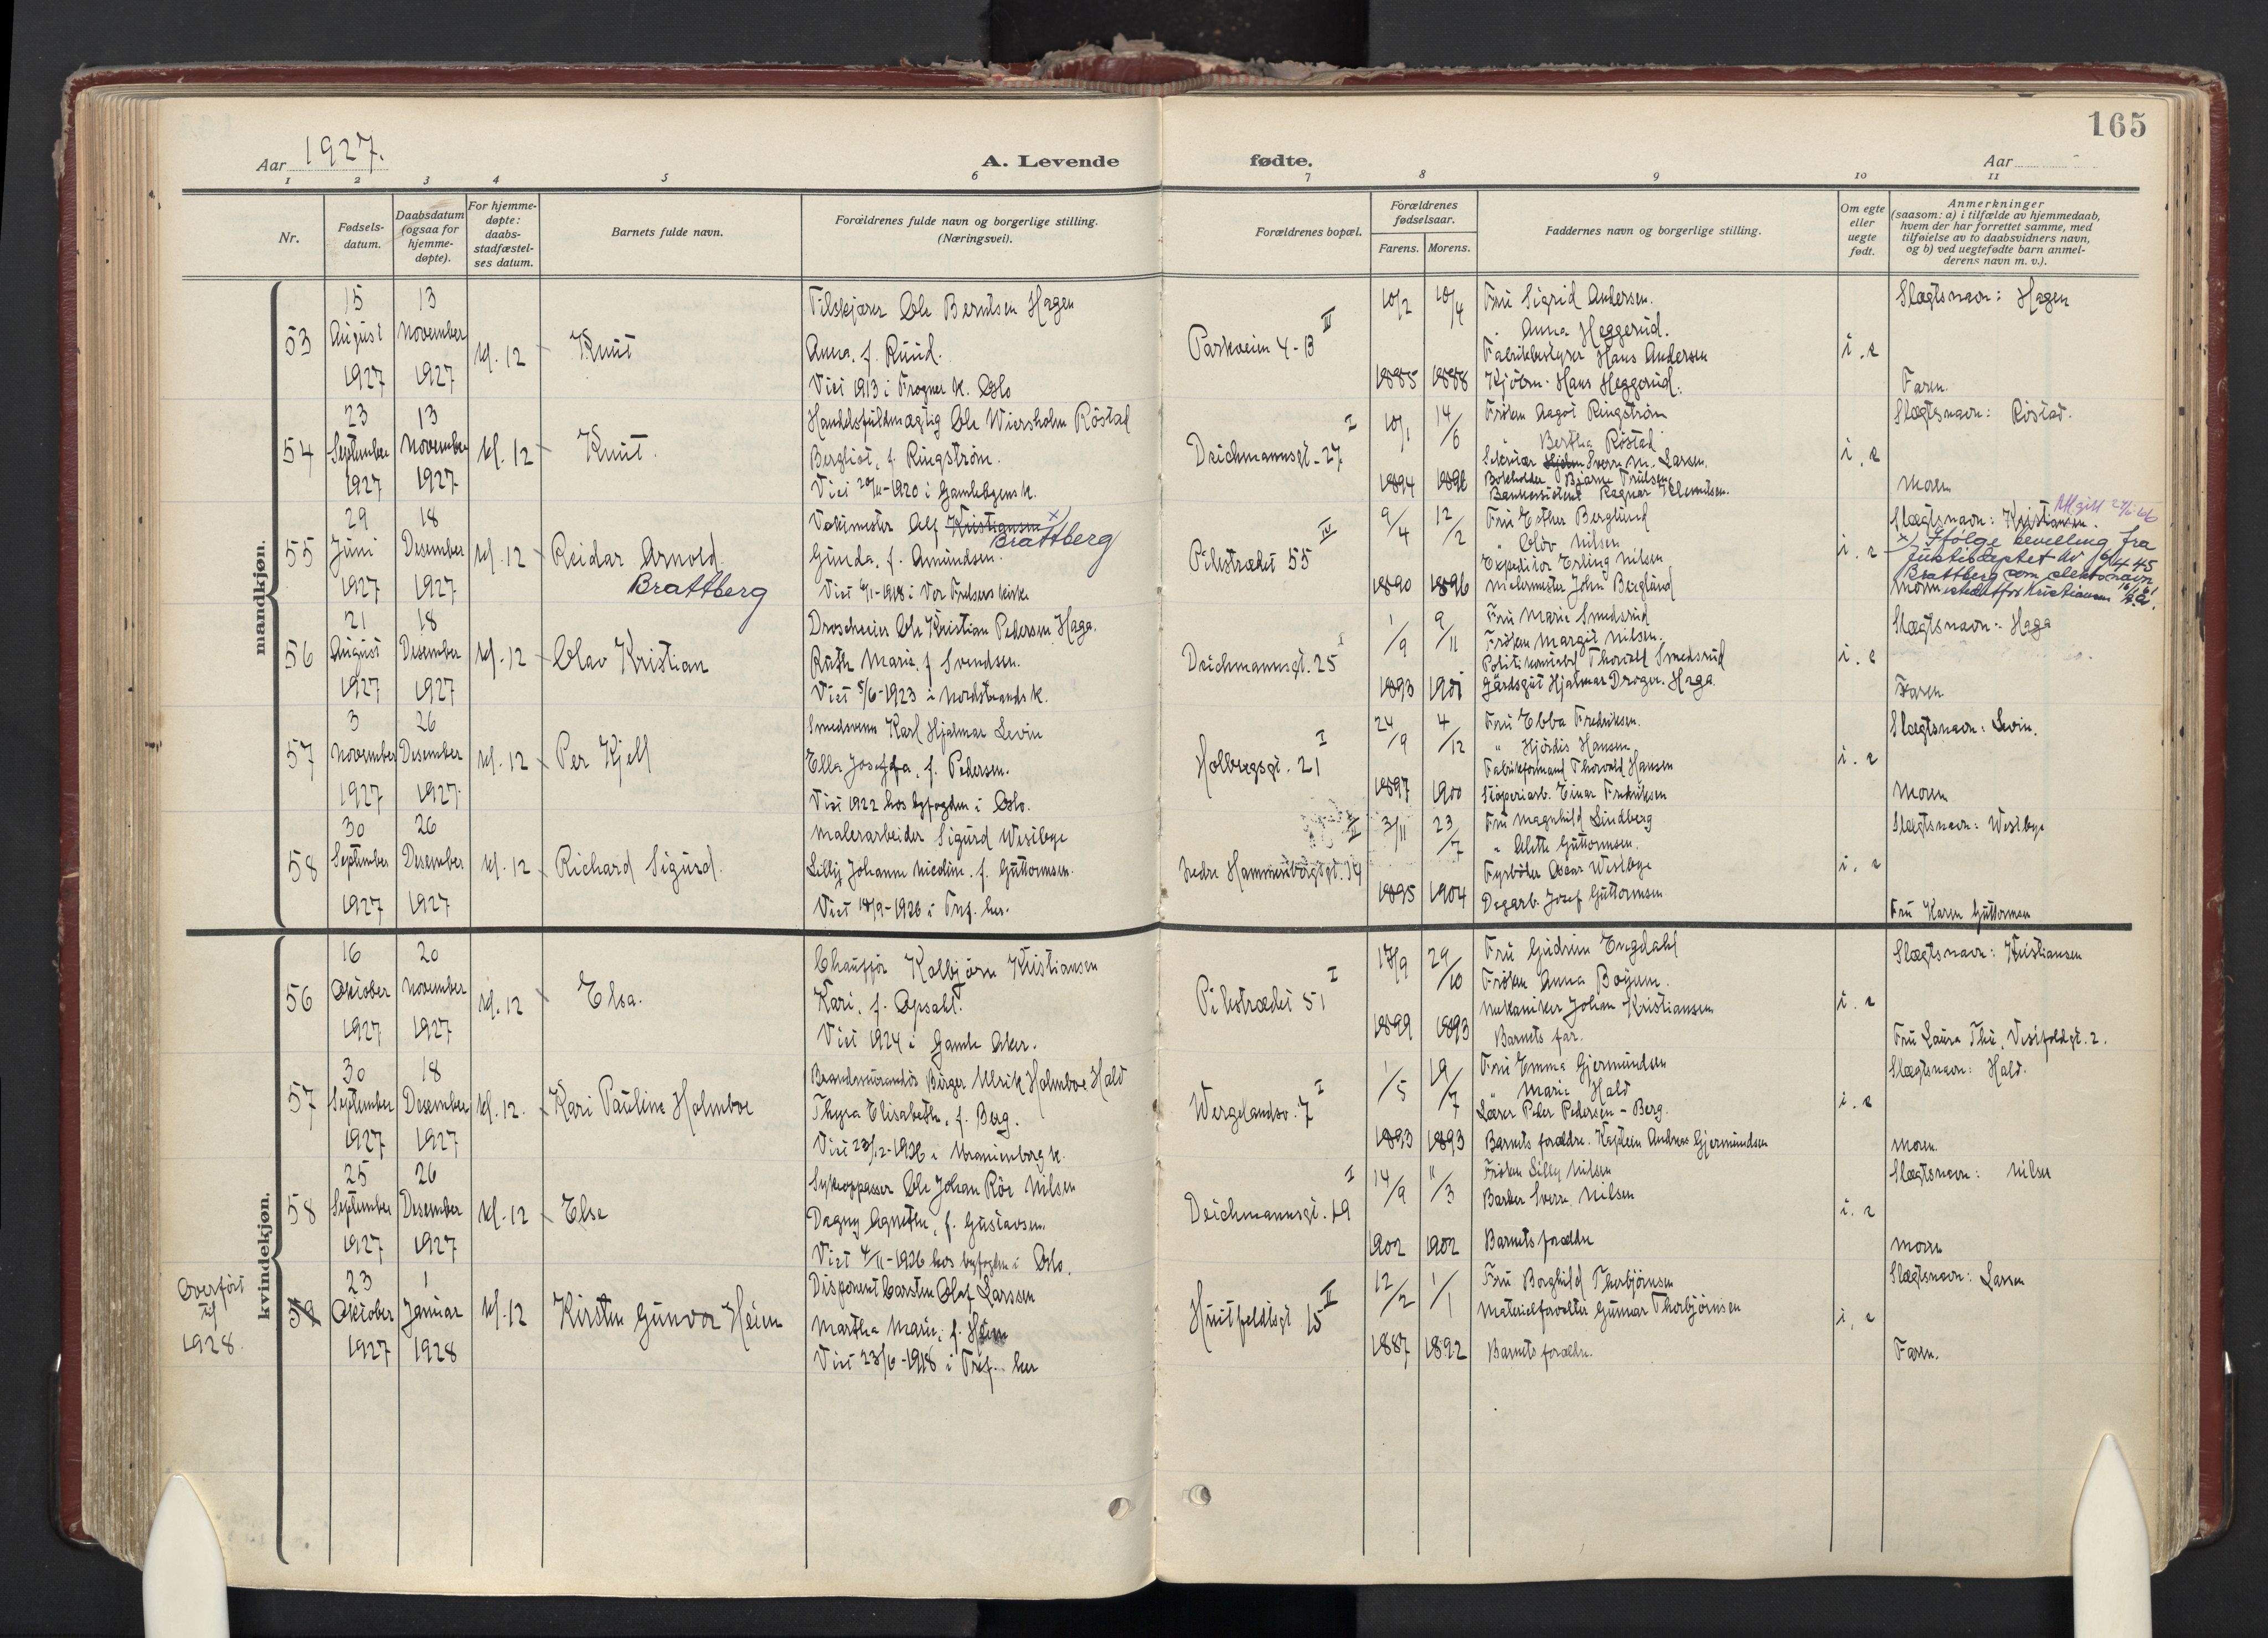 165
Aar 1927.
A. Levende
fødte.
Aar
1 2 3 4 5 6 7 8 9 10 11
Nr.
Fødsels-
datum.
Daabsdatum
(ogsaa for
hjemme-
døpte).
For hjemme-
døpte:
daabs-
stadfæstel-
ses datum.
Barnets fulde navn.
Forældrenes fulde navn og borgerlige stilling.
(Næringsvei).
Forældrenes bopæl.
Forældrenes
fødselsaar.
Farens. Morens.
Faddernes navn og borgerlige stilling.
Om egte
eller
uegte
født.
Anmerkninger
(saasom: a) i tilfælde av hjemmedaab,
hvem der har forrettet samme, med
tilføielse av to daabsvidners navn,
og b) ved uegtefødte barn anmel-
derens navn m. v.).
mandkjøn.
53
15
August
1927
13
November
1927
kl. 12
Knut
Ole Berntsen Hagen
Anna, f. Ruud.
Viet 1913 i Frogner k. Oslo
Parkveien 4-B III
10/2 1885
10/4 1888
Fru Sigrid Andersen.
" Anna Heggerud.
Fabrikbestyrer Hans Andersen
Kjøbm. Hans Heggerud.
i. e
Slægtsnavn: Hagen
Faren.
54
23
September
1927
13
November
1927
kl. 12
Knut.
Handelsfuldmægtig Ole Wiersholm Röstad
Bergliot, f. Ringström.
Viet 20/11-1920 i Gamlebyens k.
Deichmannsgt. 27 I
10/1 1894
14/6 1896
Fröken Aagot Ringström
" Bertha Röstad
Sekretær Sverre M. Larsen.
Bokholder Bjarne Truelsen.
Bankassistent Ragnar Clemetsen.
i. e
Slægtsnavn: Röstad.
Moren
55
29
Juni
1927
18
Desember
1927
kl. 12
Reidar Arnold.
Brattberg
Vaktmester Alf Kristiansen x)
Brattberg
Gunda, f. Amundsen.
Viet 6/1-1918 i Vor Frelsers kirke
Pilestrædet 55 IV
9/4 1890
12/2 1896
Fru Esther Berglund
" Olöv Nilsen
Expeditör Erling Nilsen
Malermester John Berglund
i. e
Slægtsnavn: Kristiansen.
x) Ifölge bevilling fra
Justisdeptet av
Brattberg som slektsnavn
istedetfor Kristiansen
Moren
56
21
August
1927
18
Desember
1927
kl. 12
Olav Kristian
Droscheeier Ole Kristian Pedersen Haga.
Ruth Marie, f. Svendsen.
Viet 5/6-1923 i Nordstrands k.
Deichmannsgt. 25 I
1/9 1893
9/11 1901
Fru Marie Smedsrud
Fröken Margit Nilsen.
Politikonstabel Thorvald Smedsrud
Gårdsgut Hjalmar Droger. Haga.
i. e
Slægtsnavn: Haga
Faren
57
3
November
1927
26
Desember
1927
kl. 12
Per Kjell
Smedsvenn Karl Hjalmar Levin
Ella Josefa, f. Pedersen.
Viet 1922 hos byfogden i Oslo.
Holbergsgt. 21 I
24/9 1897
4/12 1900
Fru Ebba Fredriksen.
" Hjördis Hansen
Fabrikformand Thorvald Hansen
Stöperiarb. Einar Fredriksen
i. e
Slægtsnavn: Levin.
Moren
58
30
September
1927
26
Desember
1927
kl. 12
Richard Sigurd.
Malerarbeider Sigurd Westbye
Lilly Johanne Nicoline, f. Guttormsen.
Viet 18/9-1926 i Tref. her.
Nedre Hammersborggt. 14 II
3/11 1895
23/7 1904
Fru Magnhild Lindberg
" Alette Guttormsen.
Fyrböter Oscar Westbye
Dagarb. Josef Guttormsen
i. e
Slægtsnavn: Westbye
Fru Karen Guttormsen
kvindekjøn.
56
16
Oktober
1927
20
November
1927
kl. 12
Elsa.
Chauffør Kolbjörn Kristiansen
Kari, f. Opsahl.
Viet 1924 i Gamle Aker.
Pilestrædet 51 I
17/9 1899
29/10 1893
Fru Gudrun Engdahl
Fröken Anna Boyum.
Mekaniker Johan Kristiansen
Barnets far.
i. e
Slægtsnavn: Kristiansen
Fru Laura Thu, Vestfoldgt. 2.
57
30
September
1927
18
Desember
1927
kl. 12.
Kari Pauline Holmboe
Birger Ulrik Holmboe Hald
Thyra Elisabeth, f. Berg.
Viet 23/12-1926 i Uranienborg k.
Wergelandsv. 7 I
1/5 1893
19/7 1893
Fru Emma Gjermundsen
" Marie Hald
Lærer Peder Pedersen-Berg.
Barnets forældre. Kaptein Andreas Gjermundsen
i. e
Slægtsnavn: Hald.
Moren.
58
25
September
1927
26
Desember
1927
kl. 12
Else
Sykepasser Ole Johan Röe Nilsen
Dagny Agnethe, f. Gustavsen.
Viet 4/11-1926 hos byfogden i Oslo.
Deichmannsgt. 19 I
14/9 1902
11/3 1902
Fröken Lilly Nilsen
Barber Sverre Nilsen
Barnets forældre
i. e
Slægtsnavn: Nilsen
Moren
Overfört
til
1928.
59
23
Oktober
1927
1
Januar
1928
kl. 12
Kirsten Gunvor Heien
Disponent Carsten Olaf Larssen
Martha Marie, f. Heien
Viet 23/6-1918 i Tref. her
Huitfeldtsgt 15 II
12/2 1887
1/1 1892
Fru Borghild Thorbjörnsen
Materialforvalter Gunnar Thorbjörnsen
Barnets forældre.
i. e
Slægtsnavn: Larssen
Faren.